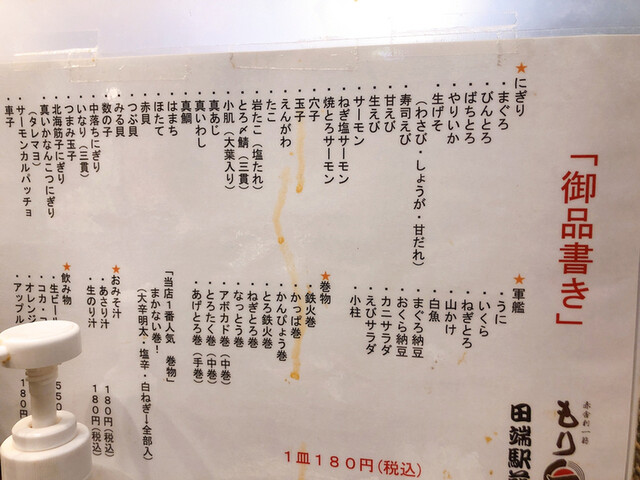 「御品書き」
★にぎり
・まぐろ
・びんとろ
・ばちとろ
・やりいか
・生げそ
（わさび・しょうが・甘だれ）
・寿司えび
・甘えび
・生えび
・サーモン
・ねぎ塩サーモン
・焼とろサーモン
・穴子
・玉子
・えんがわ
・たこ
・岩たこ（塩たれ）
・とろ〆鯖（三貫）
・小肌（大葉入り）
・真あじ
・真いわし
・真鯛
・はまち
・ほたて
・赤貝
・つぶ貝
・みる貝
・数の子
・中落ちにぎり
・いなり（三貫）
・つまみ玉子
・北海筋子にぎり
・真いかなんこつにぎり
（タレマヨ）
・サーモンカルパッチョ
・車子
★軍艦
・うに
・いくら
・ねぎとろ
・山かけ
・まぐろ納豆
・おくら納豆
・白魚
・カニサラダ
・えびサラダ
・小柱
★巻物
・鉄火巻
・かっぱ巻
・かんぴょう巻
・とろ鉄火巻
・ねぎとろ巻
・なっとう巻
・アボカド巻（中巻）
・とろたく巻（中巻）
・あげとろ巻（手巻）
「当店1番人気　巻物」
まかない巻！
（大辛明太・塩辛・白ねぎ→全部入）
★おみそ汁
・あさり汁　180円（税込）
・生のり汁　180円（税込）
★飲み物
・生ビール
550
・コカ・コ
・オレンジ
180円
・アップル
1皿180円(税込)
もり
田端駅